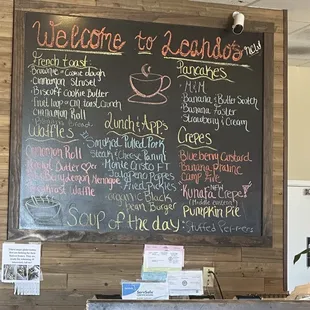 Welcome to Leando's
French toast:
Brownie + Cookie dough
Cinnamon Strusel
Biscoff Cookie Butter
Fruit loop Crunch
Cinnamon Roll
Waffles
Cinnamon Roll
Peanut Butter
Blueberry Lemon Meringue
Breakfast Waffle
Lunch & Apps
Smoked Pulled Pork
Steak & Cheese Panini
Monte Cristo
Jalapeno Poppers
Fried Pickles
Organic Black
Bean Burger
Soup of the day
Stuffed Peppers
Pancakes
M+M
Banana & Butter Scotch
Banana Foster
Strawberry & Cream
Crepes
Blueberry Custard
Banana praline
Camp Fire
Kunafa Crepe
Pumpkin Pie